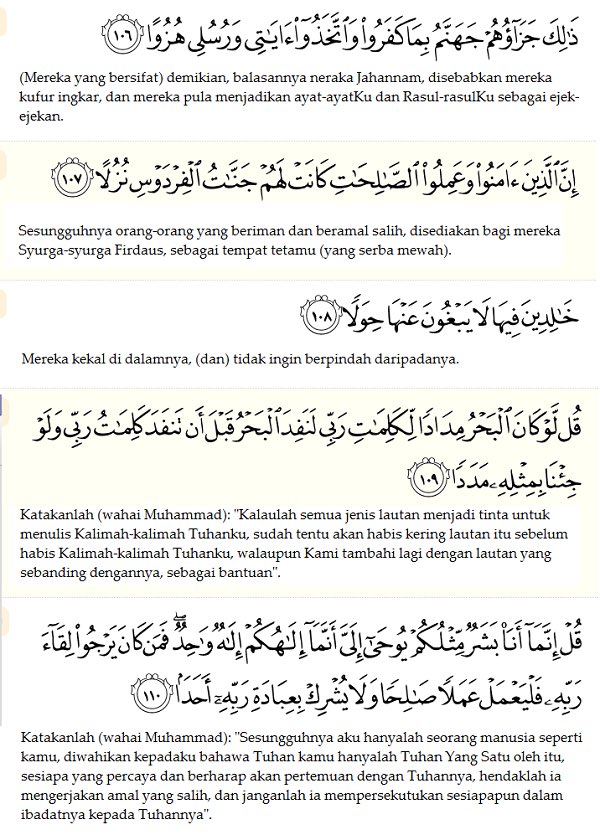 ذَٰلِكَ جَزَآؤُهُمْ جَهَنَّمُ بِمَا كَفَرُوا۟ وَٱتَّخَذُوٓا۟ ءَايَـٰتِى وَرُسُلِى هُزُوًا ١٠٦
(Mereka yang bersifat) demikian, balasannya neraka Jahannam, disebabkan mereka
kufur ingkar, dan mereka pula menjadikan ayat-ayatKu dan Rasul-rasulKu sebagai ejek-
ejekan.
إِنَّ ٱلَّذِينَ ءَامَنُوا۟ وَعَمِلُوا۟ ٱلصَّـٰلِحَـٰتِ كَانَتْ لَهُمْ جَنَّـٰتُ ٱلْفِرْدَوْسِ نُزُلًا ١٠٧
Sesungguhnya orang-orang yang beriman dan beramal salih, disediakan bagi mereka
Syurga-syurga Firdaus, sebagai tempat tetamu (yang serba mewah).
خَـٰلِدِينَ فِيهَا لَا يَبْغُونَ عَنْهَا حِوَلًا ١٠٨
Mereka kekal di dalamnya, (dan) tidak ingin berpindah daripadanya.
قُل لَّوْ كَانَ ٱلْبَحْرُ مِدَادًا لِّكَلِمَـٰتِ رَبِّى لَنَفِدَ ٱلْبَحْرُ قَبْلَ أَن تَنفَدَ كَلِمَـٰتُ رَبِّى وَلَوْ
جِئْنَا بِمِثْلِهِۦ مَدَدًا ١٠٩
Katakanlah (wahai Muhammad): "Kalaulah semua jenis lautan menjadi tinta untuk
menulis Kalimah-kalimah Tuhanku, sudah tentu akan habis kering lautan itu sebelum
habis Kalimah-kalimah Tuhanku, walaupun Kami tambahi lagi dengan lautan yang
sebanding dengannya, sebagai bantuan".
قُلْ إِنَّمَآ أَنَا۠ بَشَرٌ مِّثْلُكُمْ يُوحَىٰٓ إِلَىَّ أَنَّمَآ إِلَـٰهُكُمْ إِلَـٰهٌ وَٰحِدٌ ۖ فَمَن كَانَ يَرْجُوا۟ لِقَآءَ
رَبِّهِۦ فَلْيَعْمَلْ عَمَلًا صَـٰلِحًا وَلَا يُشْرِكْ بِعِبَادَةِ رَبِّهِۦٓ أَحَدًۢا ١١٠
Katakanlah (wahai Muhammad): "Sesungguhnya aku hanyalah seorang manusia seperti
kamu, diwahikan kepadaku bahawa Tuhan kamu hanyalah Tuhan Yang Satu oleh itu,
sesiapa yang percaya dan berharap akan pertemuan dengan Tuhannya, hendaklah ia
mengerjakan amal yang salih, dan janganlah ia mempersekutukan sesiapapun dalam
ibadatnya kepada Tuhannya".